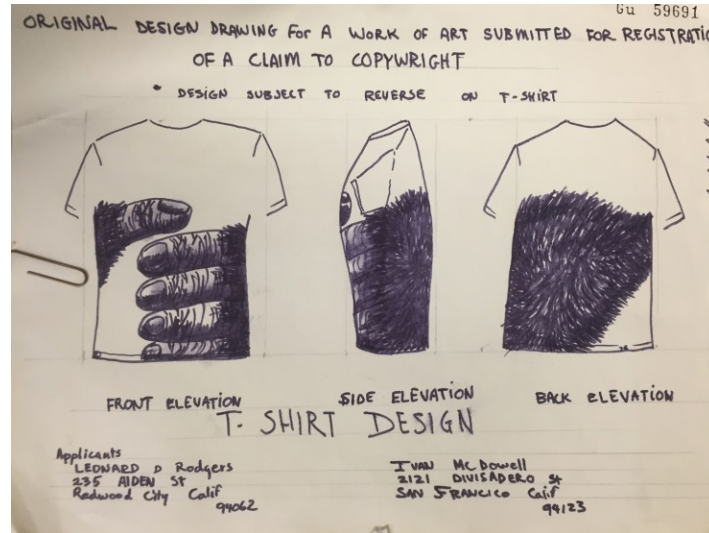 Gu 59691
ORIGINAL DESIGN DRAWING FOR A WORK OF ART SUBMITTED FOR REGISTRATIO
OF A CLAIM TO COPYWRIGHT
• DESIGN SUBJECT TO REVERSE ON T-SHIRT
FRONT ELEVATION
SIDE ELEVATION
BACK ELEVATION
T-SHIRT DESIGN
Applicants
LEONARD D Rodgers
235 AIDEN St
Redwood City Calif
94062
IVAN McDowell
2121 DIVISADERO St
SAN FRANCICO Calif
94123